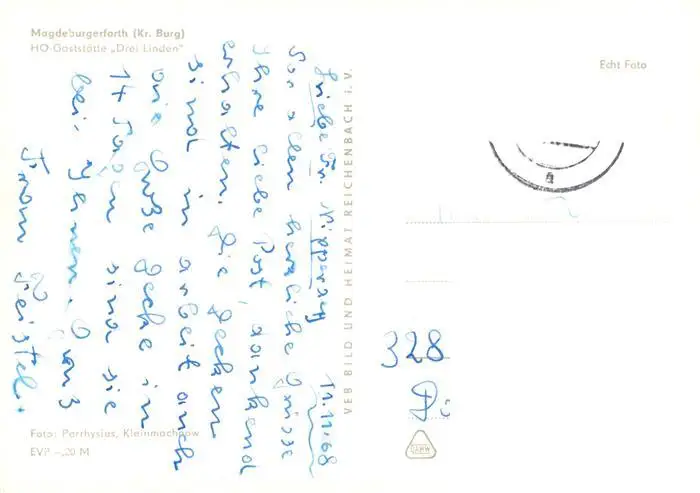 Magdeburgerforth (Kr. Burg)
HO-Gaststätte „Drei Linden"
Echt Foto
11.11.68
Liebe Fr. Nipperaff
Vor allem herzliche Grüsse
Ihre liebe Post dankend
erhalten. Die Decken
sind in arbeit auch
die Große Decke in
14 Tagen sind sie
bei Ihnen.
From
VEB BILD UND HEIMAT REICHENBACH i. V.
328
Foto: Parthysius, Kleinmachnow
EVP –,20 M